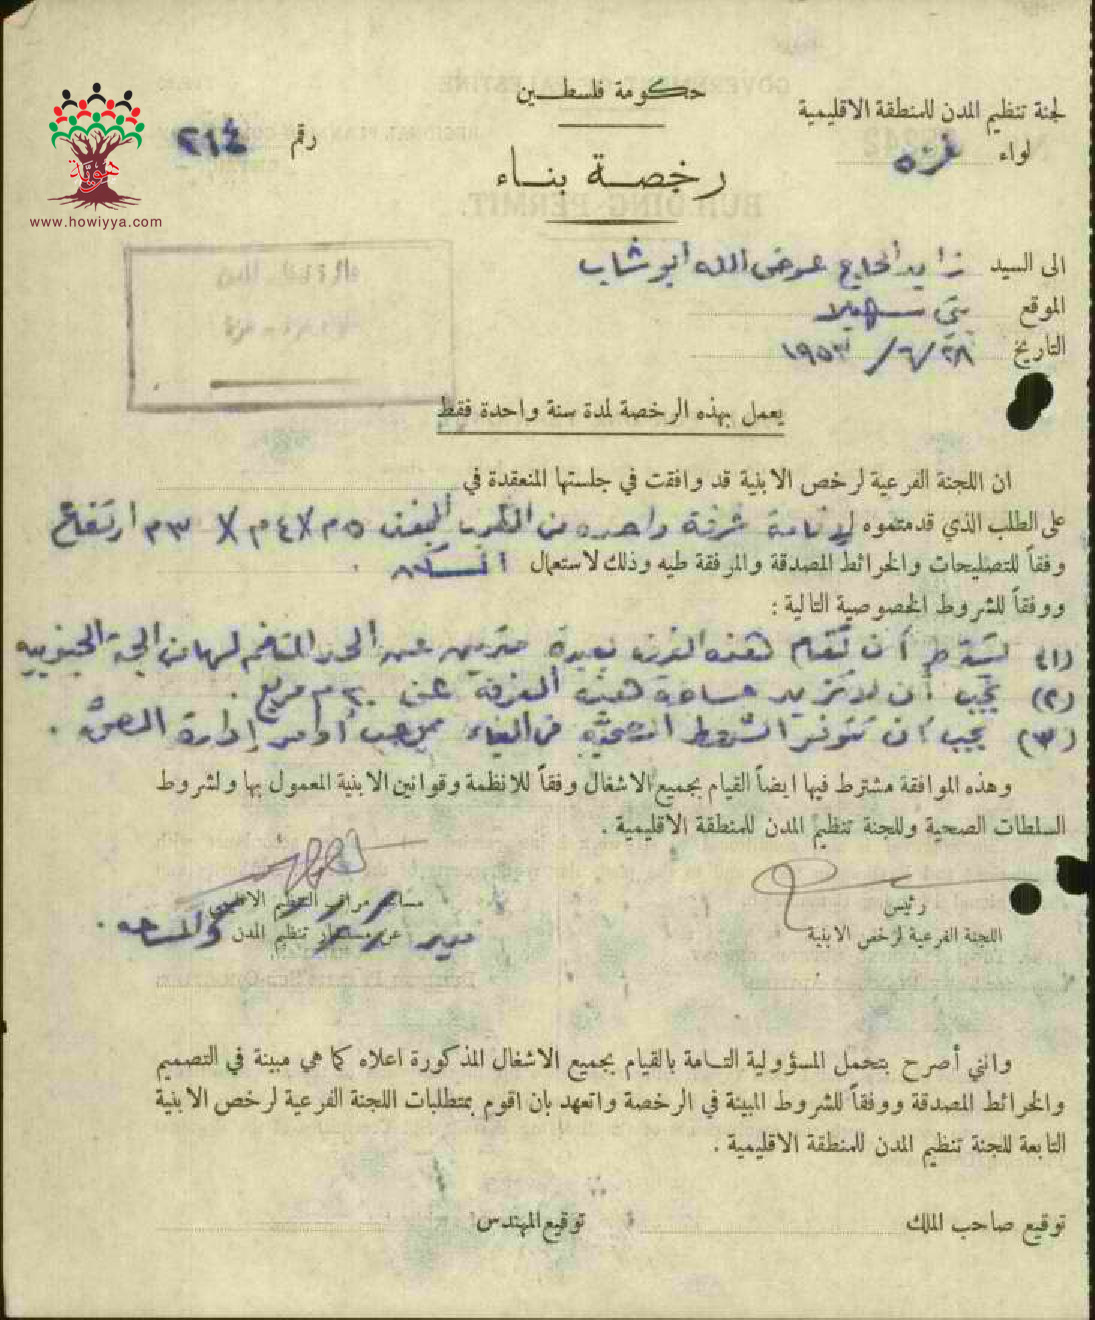 حكومة فلسطين
لجنة تنظيم المدن للمنطقة الاقليمية
لواء غزه
رقم ٢١٤
هوية
www.howiyya.com
رخصة بناء
الى السيد زايد الحاج عوض الله ابو شاب
الموقع بني سهيلا
التاريخ ٢٨/٦/١٩٥٣
يعمل بهذه الرخصة لمدة سنة واحدة فقط
ان اللجنة الفرعية لرخص الابنية قد وافقت في جلستها المنعقدة في
على الطلب الذي قدمتموه لإقامة غرفة واحده من الطوب ٥م X ٤م X ٣م ارتفاع
وفقاً للتصليحات والخرائط المصدقة والمرفقة طيه وذلك لاستعمال السكن .
ووفقاً للشروط الخصوصية التالية :
(١) يشترط أن تقام هذه الغرفة بعيدة مترين عن الحد المتاخم لها من الجهة الجنوبيه
(٢) يجب أن لا تزيد مساحة هذه الغرفة عن ٢٠ م مربع .
(٣) يجب أن تتوفر الشروط الصحية في البناء بموجب أوامر إدارة الصحة .
وهذه الموافقة مشترط فيها ايضاً القيام بجميع الاشغال وفقاً للانظمة وقوانين الابنية المعمول بها ولشروط
السلطات الصحية وللجنة تنظيم المدن للمنطقة الاقليمية .
رئيس
اللجنة الفرعية لرخص الابنية
مساعد مراقب التنظيم الاقليمي
مدير عن مستشار تنظيم المدن والمساحه .
وانني أصرح بتحمل المسؤولية التامة بالقيام بجميع الاشغال المذكورة اعلاه كما هي مبينة في التصميم
والخرائط المصدقة ووفقاً للشروط المبينة في الرخصة واتعهد بان اقوم بمتطلبات اللجنة الفرعية لرخص الابنية
التابعة للجنة تنظيم المدن للمنطقة الاقليمية .
توقيع صاحب الملك توقيع المهندس